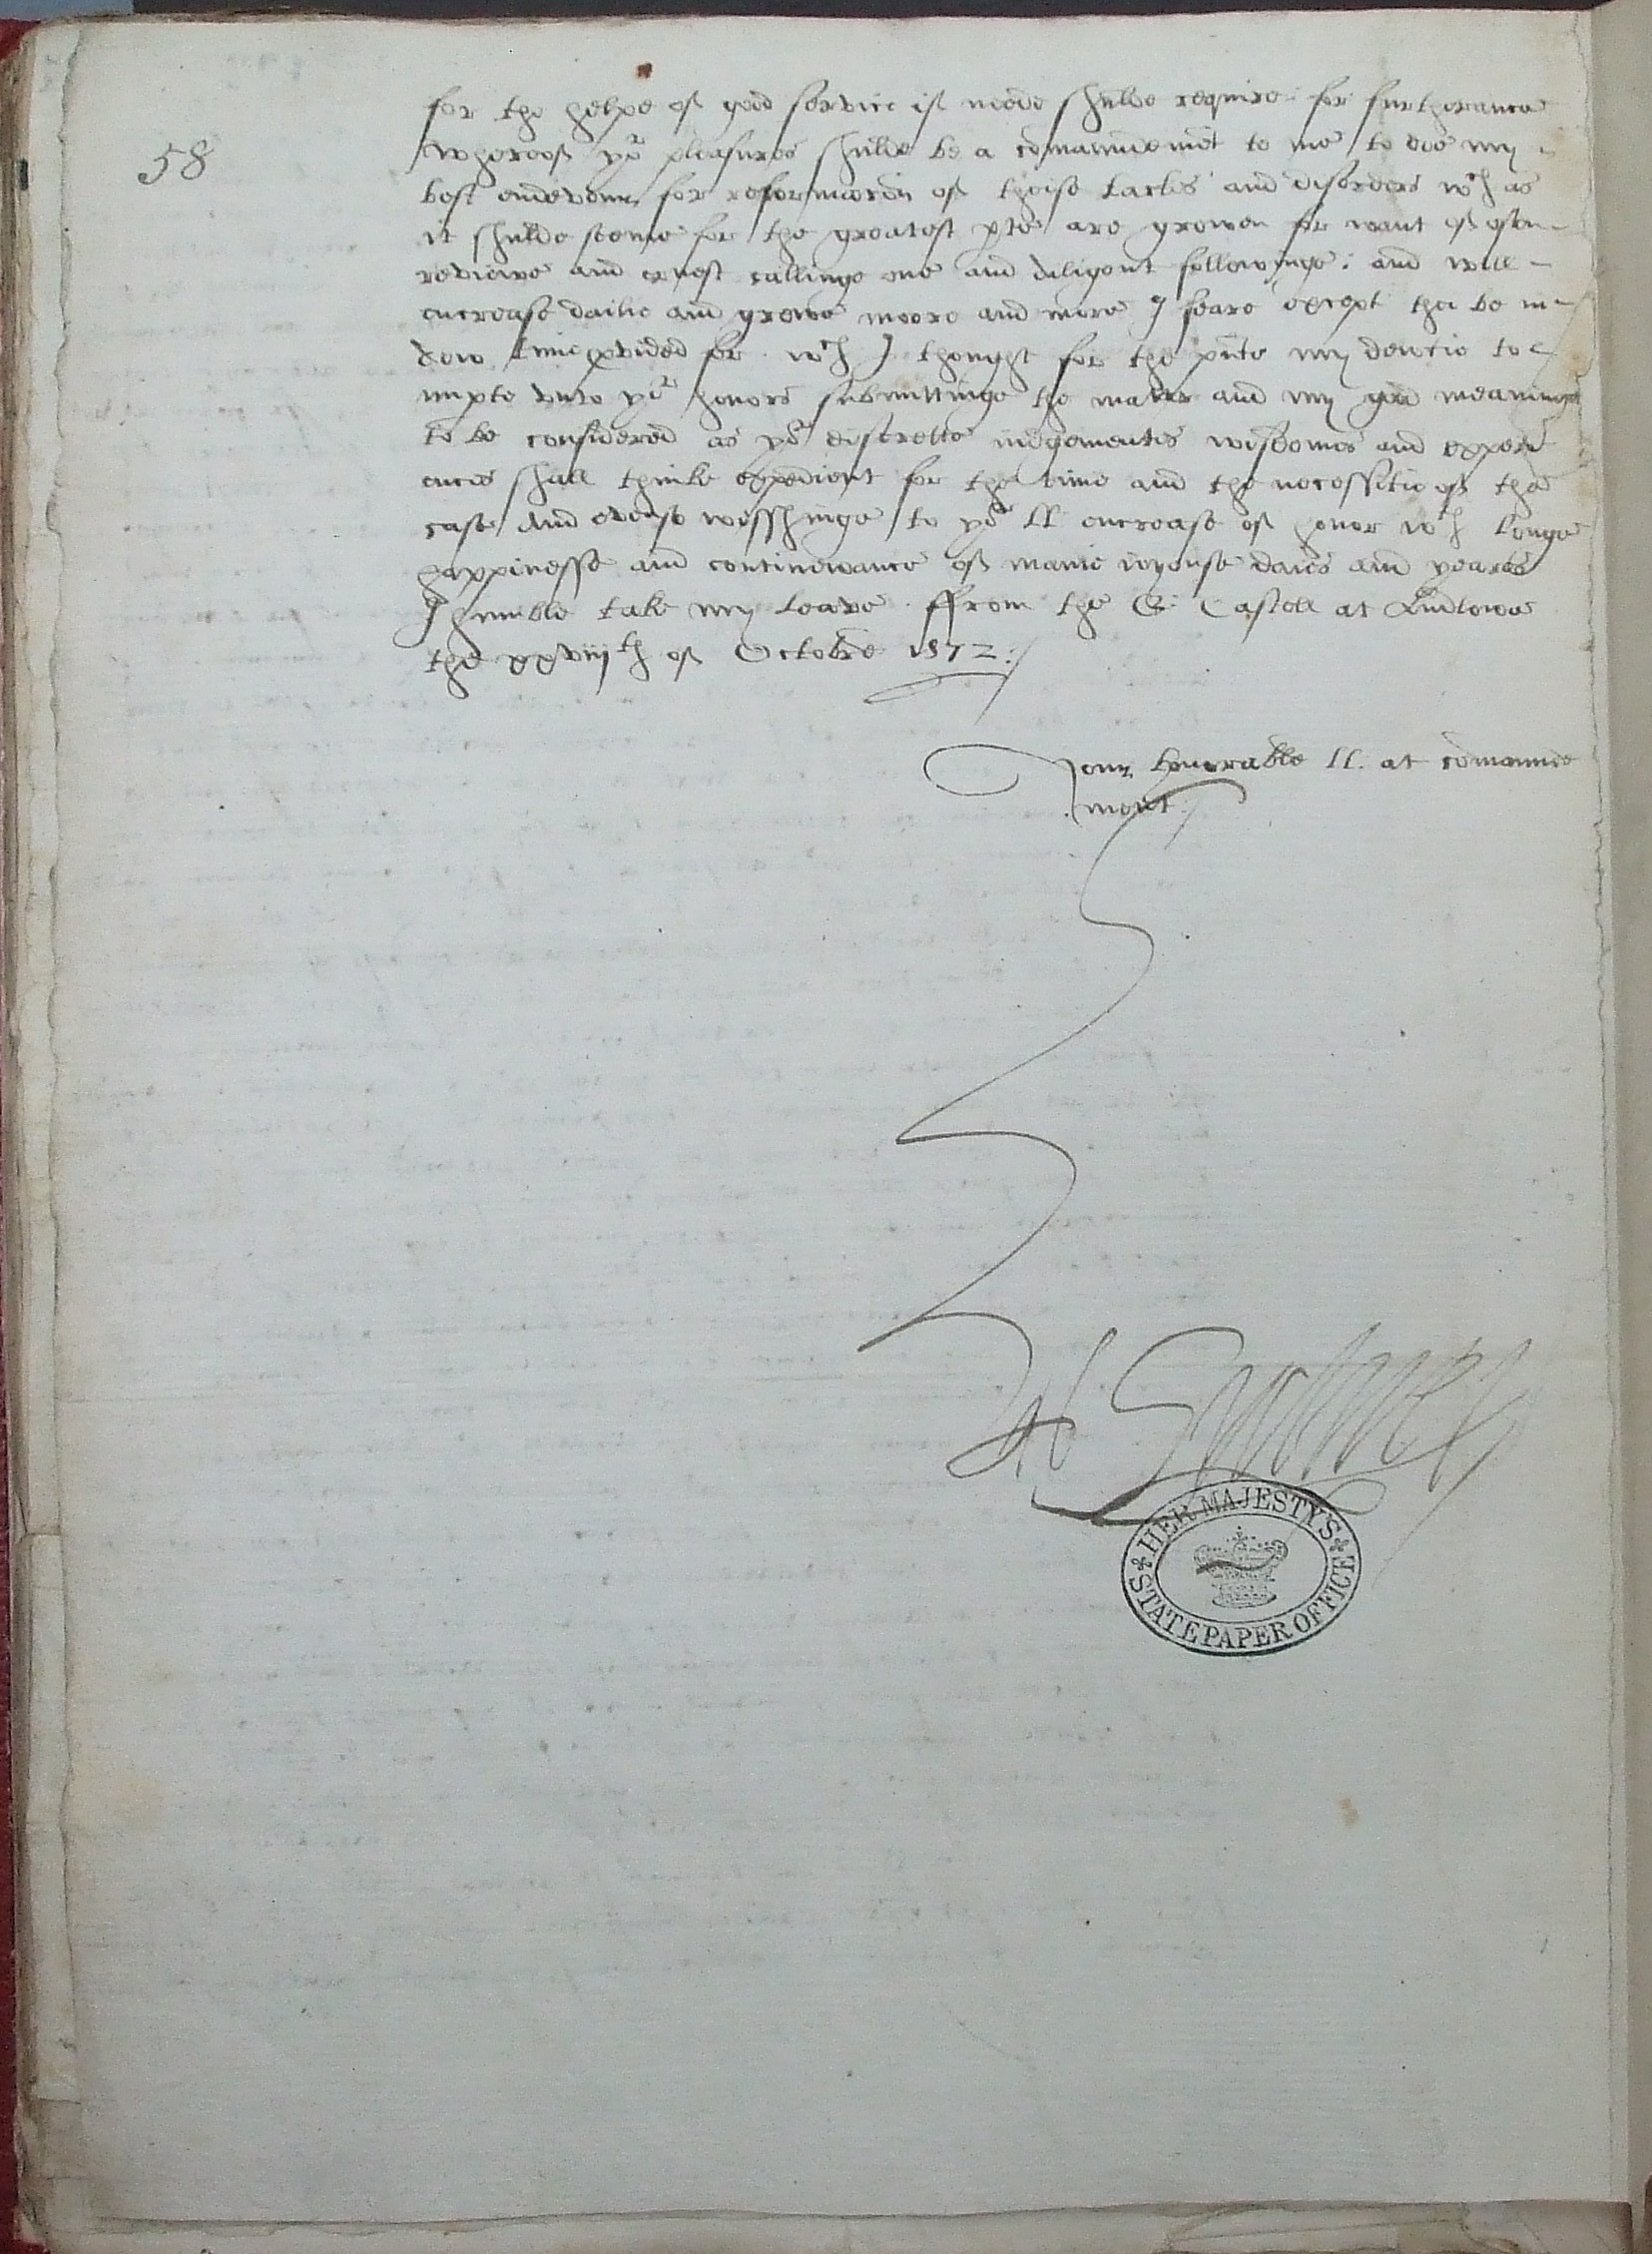 58
for the helpe of good service if nede shulde require. for furtherance
Whereof yor pleasures shulde be a comaundemet to me to doe my
best endevour for reformacon of theise lackes and disorders wch as
it shulde seeme for the greatest pte are growen for want of often
reviewe and ernest callinge one and diligent followinge: and will
encrease dailie and growe moore and more I feare except thei be in
dew time pvided for. wch I thought for the pnte my dewtie to
impte unto yor honors submittinge the matter and my good meaninge
to be considered as yor discrette iudgementes wisdomes and experi
ences shall thinke expedient for the time and the necessitie of the
case. And evense wisshinge to yor LL encrease of honor wth longe
happinesse and continewance of manie ioyouse daies and yeares
I humble take my leave. ffrom the Q: Castell at Ludlowe
the xxviijth of Octobre 1572:/
Your honorable LL. at comaunde
ment:/
H Sydney
HER MAJESTY'S
STATE PAPER OFFICE